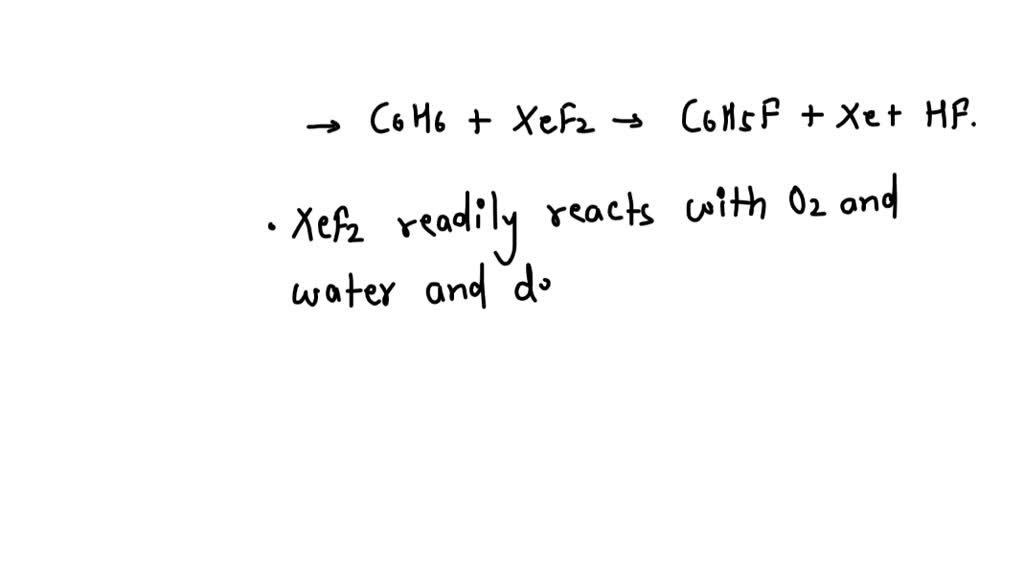 → C6H6 + XeF2 → C6H5F + Xe + HF.
• XeF2 readily reacts with O2 and
water and do